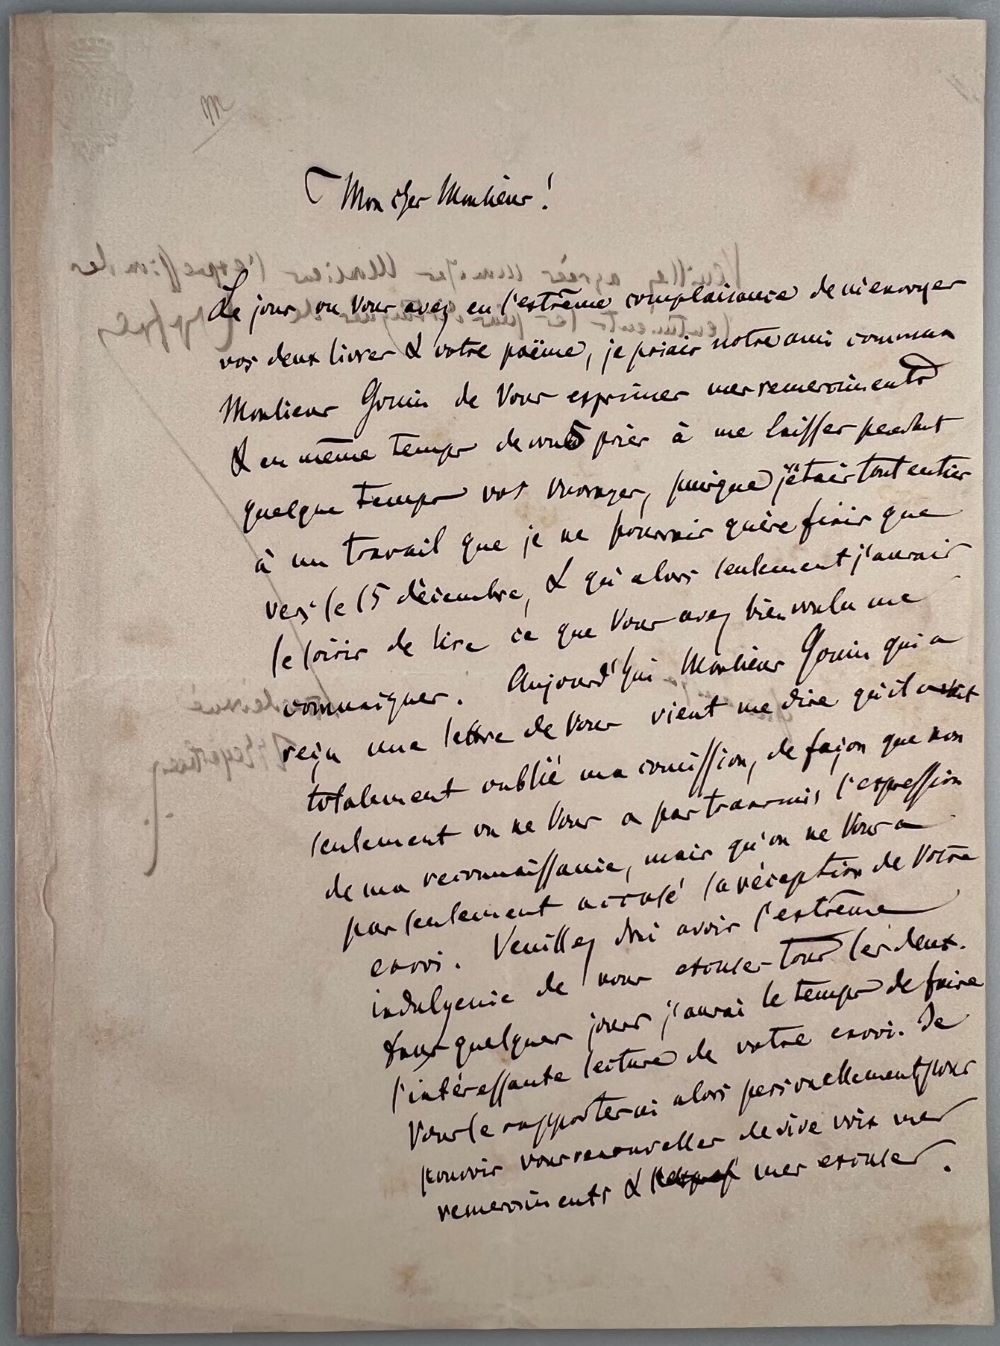 M
Mon cher Monsieur !
Le jour ou Vous avez eu l'extrême complaisance de m'envoyer
vos deux livres & votre poëme, je priais notre ami commun
Monsieur Gouin de Vous exprimer mes remerciments
& en même temps de vous prier à me laisser pendant
quelque temps vos ouvrages, puisque j'étais tout entier
à un travail que je ne pourrais guère finir que
vers le 15 décembre, & qu'alors seulement j'aurais
le loisir de lire ce que Vous avez bien voulu me
communiquer. Aujourd'hui Monsieur Gouin qui a
reçu une lettre de Vous vient me dire qu'il avait
totalement oublié ma comission, de façon que non
seulement on ne Vous a pas transmis l'expression
de ma reconnaissance, mais qu'on ne Vous a
pas seulement accusé la réception de Votre
envoi. Veuillez donc avoir l'extrême
indulgence de nous excuser tous les deux.
Dans quelques jours j'aurai le temps de faire
l'intéressante lecture de votre envoi. Je
Vous le rapporterai alors personellement pour
pouvoir vous renouveller de vive voix mes
remerciments & mes excuses.